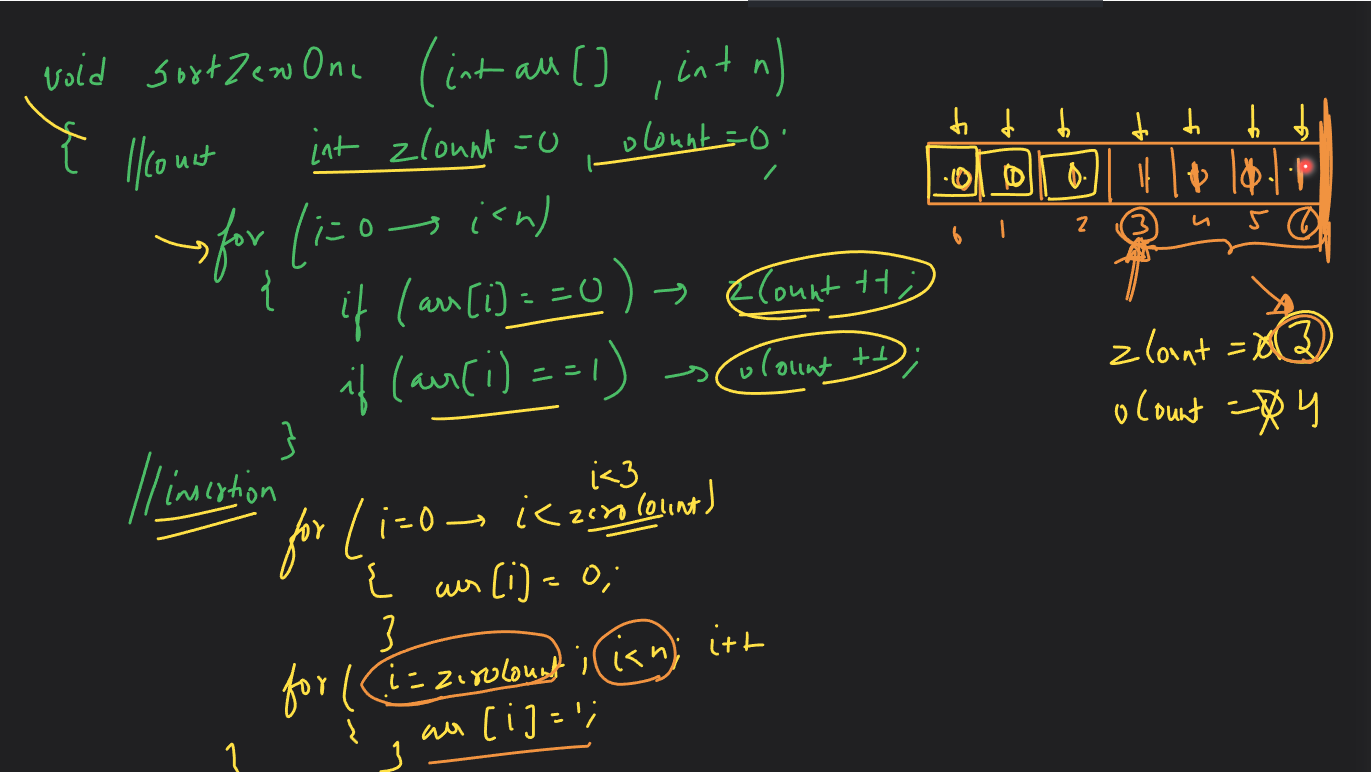 void sortZeroOne (int arr[] , int n)
{ //Count int zCount = 0 , oCount = 0 ;
for (i=0 → i<n)
{
if (arr[i] == 0) → zCount ++ ;
if (arr[i] == 1) → oCount ++ ;
}
//insertion
i<3
for (i=0 → i< zeroCount)
{ arr[i] = 0;
}
for ( i = zeroCount ; i<n; i++
{ arr[i] = 1;
} }
0 1 2 3 4 5 6
zCount = 0 3
oCount = 0 4